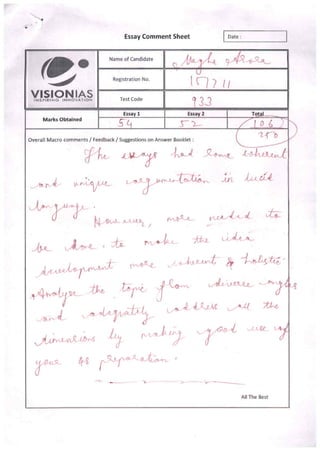 Essay Comment Sheet
Date :
Name of Candidate
Megha Arora
Registration No.
VISIONIAS
INSPIRING INNOVATION
Test Code
933
Marks Obtained
Essay 1
Essay 2
Total
54
52
106
250
Overall Macro comments / Feedback / Suggestions on Answer Booklet :
The essays had some coherent
and unique argumentation in lucid
language.
However, more needed to
be done to make the idea
development more coherent & holistic.
Analyse the topic from diverse angles
and adequately address all the
dimensions by making good use of
your preparation.
All The Best